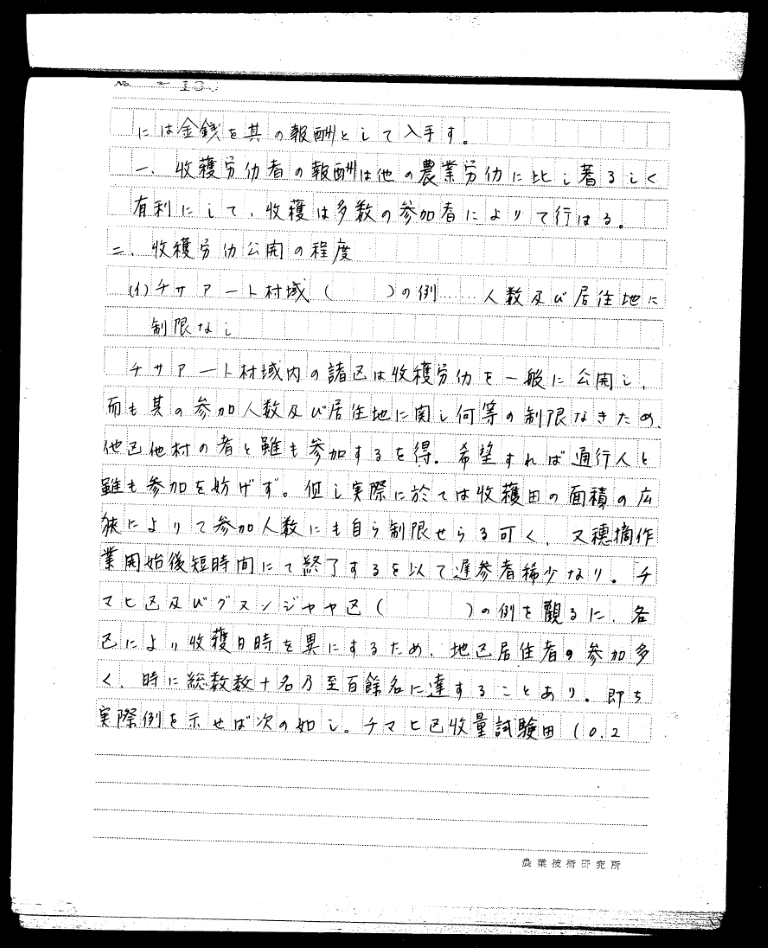 No. 2 - 10
には金銭を其の報酬として入手す。
一、收穫労仂者の報酬は他の農業労仂に比し著るしく
有利にして、收穫は多数の参加者によりて行はる。
二、收穫労仂公開の程度
(1)チサアート村域（　　）の例……人数及び居住地に
制限なし
チサアート村域内の諸区は收穫労仂を一般に公開し、
而も其の参加人数及び居住地に関し何等の制限なきため、
他区他村の者と雖も参加するを得。希望すれば通行人と
雖も参加を妨げず。但し実際に於ては收穫田の面積の広
狭によりて参加人数にも自う制限せらる可く、又穂摘作
業開始後短時間にて終了するを以て遅参者稀少なり。チ
マヒ区及びグヌンジャヤ区（　　　）の例を観るに、各
区により收穫日時を異にするため、地区居住者の参加多
く、時に総数数十名乃至百餘名に達することあり。即ち
実際例を示せば次の如し。チマヒ区收量試験田（0.2
農業技術研究所